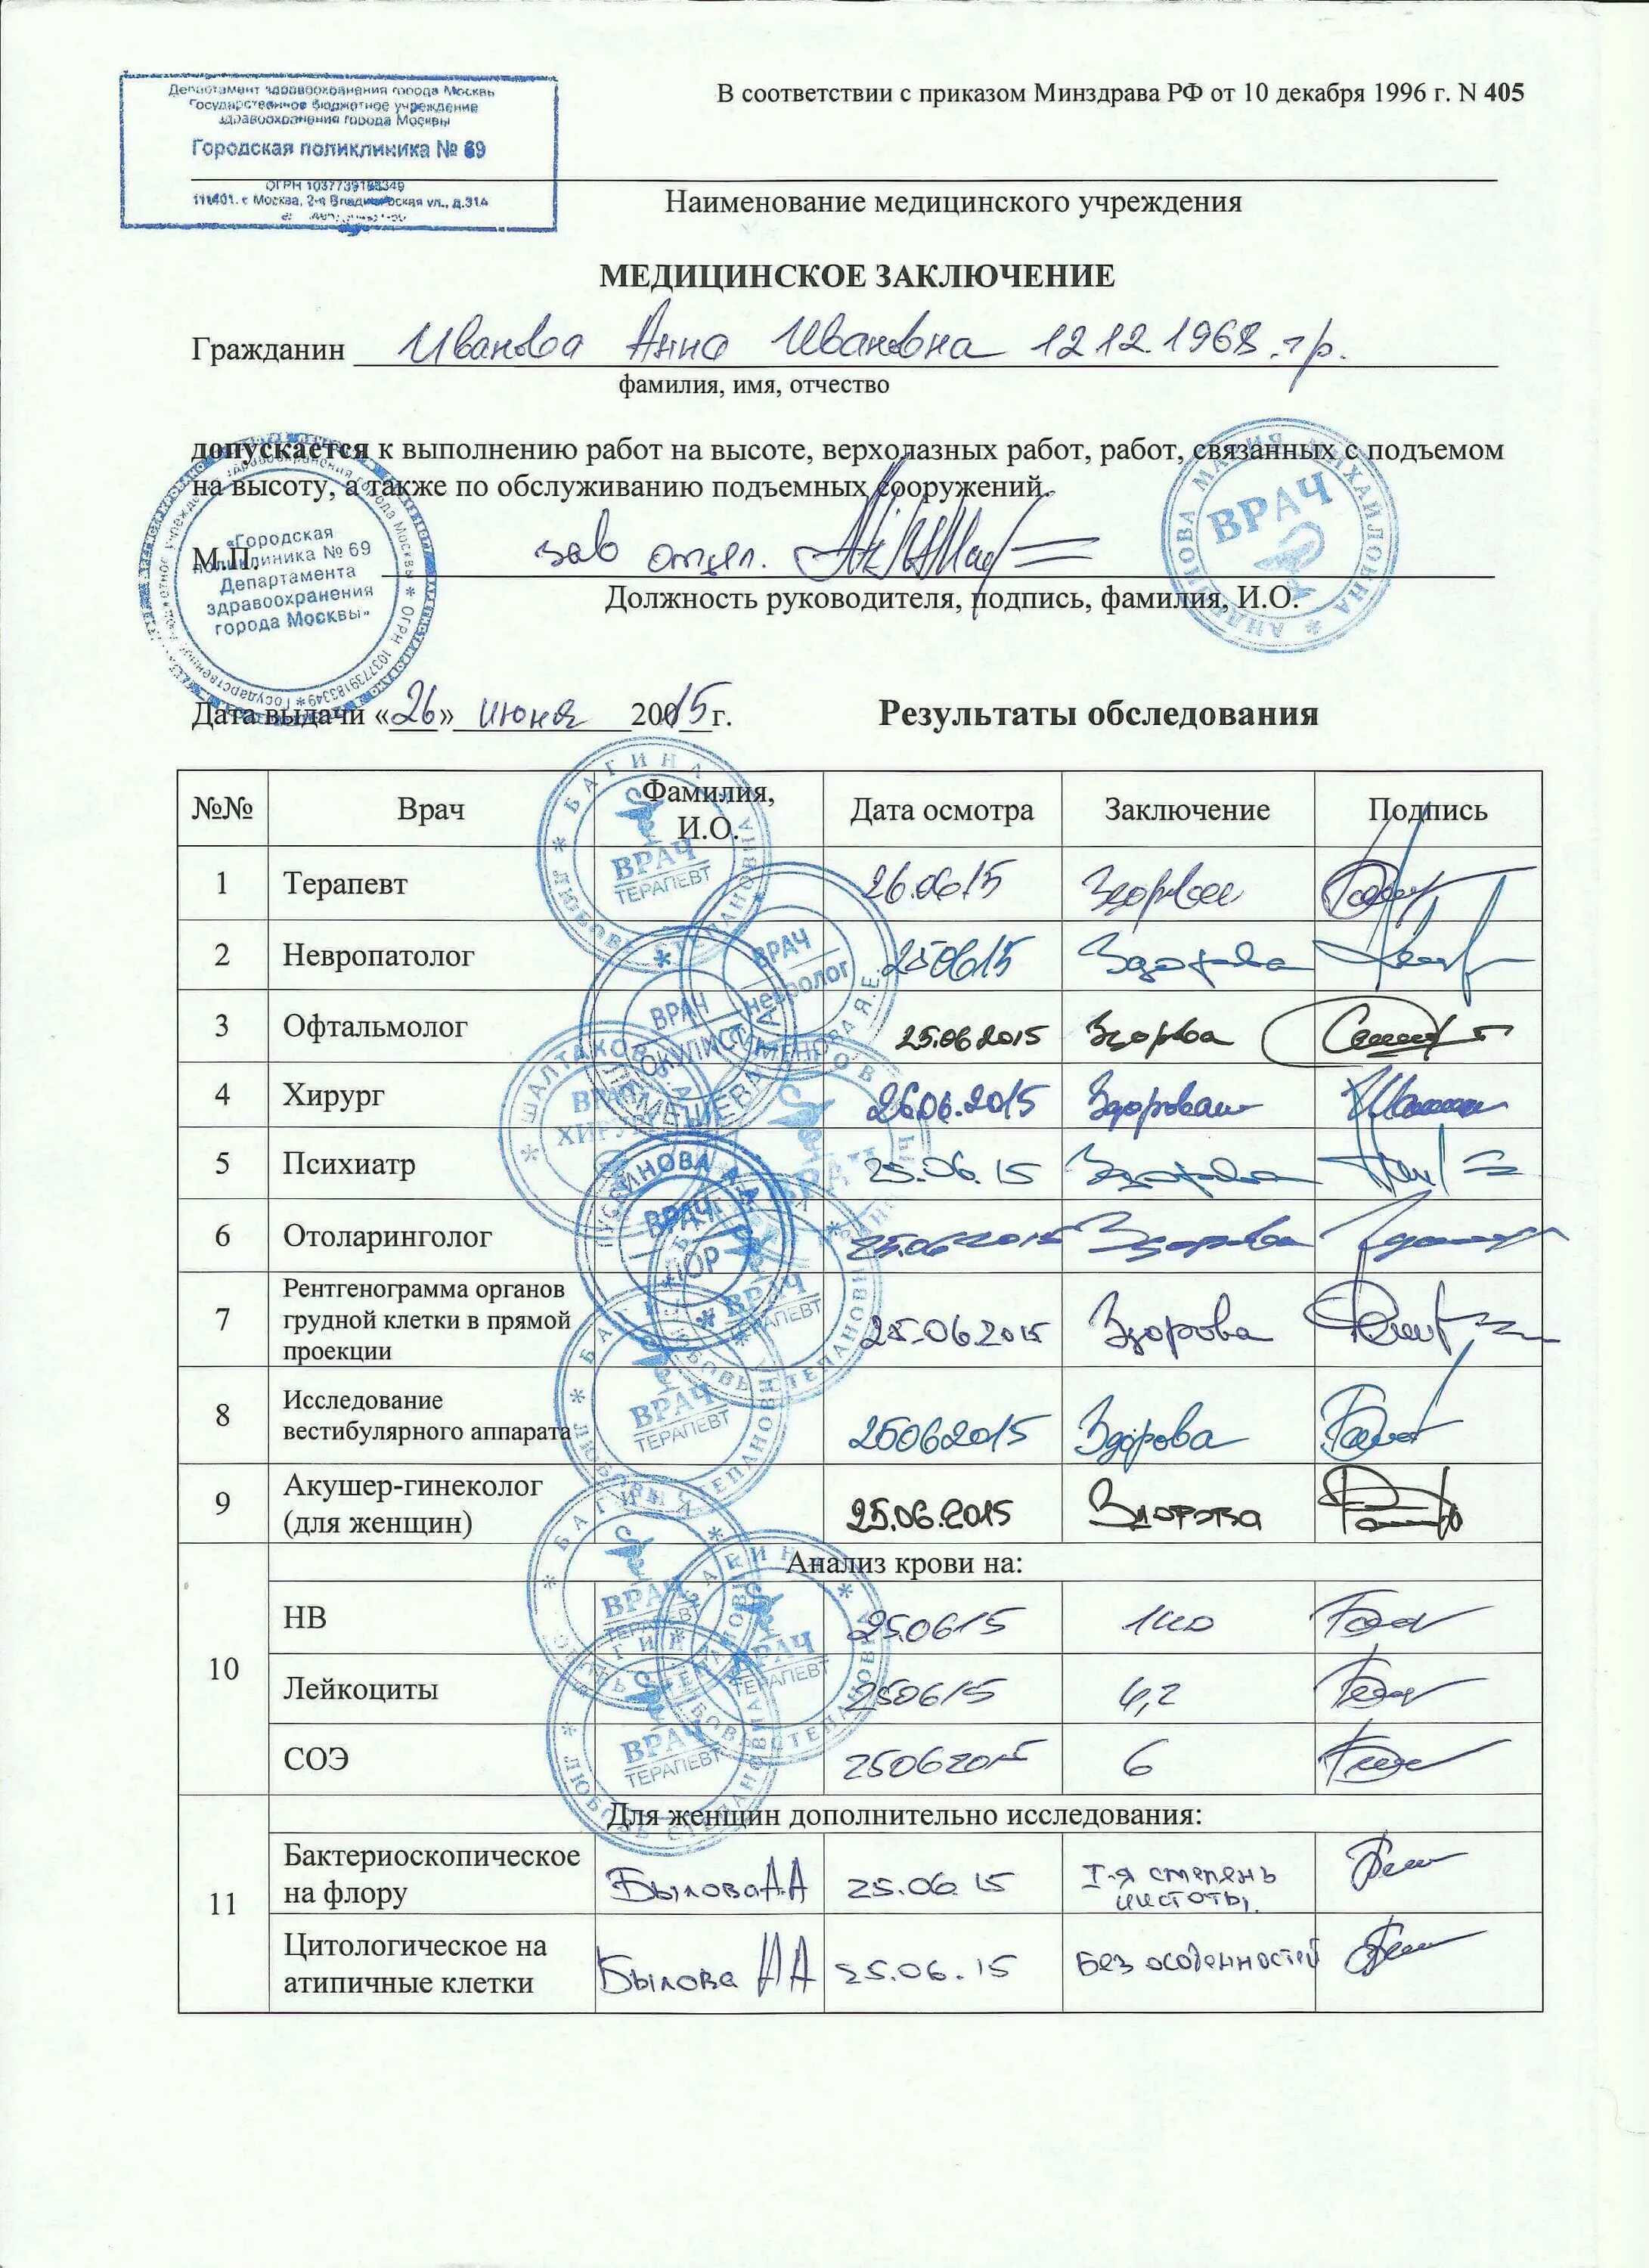 Департамент здравоохранения города Москвы
Государственное бюджетное учреждение
здравоохранения города Москвы
Городская поликлиника № 69
ОГРН 1037739183349
111401, г. Москва, 2-я Владимирская ул., д.31А
В соответствии с приказом Минздрава РФ от 10 декабря 1996 г. N 405
Наименование медицинского учреждения
МЕДИЦИНСКОЕ ЗАКЛЮЧЕНИЕ
Гражданин Иванова Анна Ивановна 12.12.1968 г.р.
фамилия, имя, отчество
допускается к выполнению работ на высоте, верхолазных работ, работ, связанных с подъемом
на высоту, а также по обслуживанию подъемных сооружений.
АНДРИАНОВА МАРИЯ МИХАЙЛОВНА
ВРАЧ
«Городская
поликлиника № 69
Департамента
здравоохранения
города Москвы»
ОГРН 1037739183349
М.П. зав отдел.
Должность руководителя, подпись, фамилия, И.О.
Дата выдачи «26» июня 20015г.
Результаты обследования
№№ Врач Фамилия, И.О. Дата осмотра Заключение Подпись
1 Терапевт 26.06.15 Здорова
2 Невропатолог 250615 Здорова
3 Офтальмолог 25.06.2015 Здорова
4 Хирург 26.06.2015 Здорова
5 Психиатр 25.06.15 Здорова
6 Отоларинголог 25.06.2015 Здорова
7 Рентгенограмма органов
грудной клетки в прямой
проекции 25.06.2015 Здорова
8 Исследование
вестибулярного аппарата 25062015 Здорова
9 Акушер-гинеколог
(для женщин) 25.06.2015 Здорова
БАГИНА ЛЮБОВЬ СТЕПАНОВНА
ВРАЧ
ТЕРАПЕВТ
ВРАЧ
невролог
ВРАЧ
ОКУЛИСТ
ВРАЧ
ХИРУРГ
ВРАЧ
ЛОР
10 Анализ крови на:
НВ 250615 140
Лейкоциты 250615
СОЭ 25062015 6
11 Для женщин дополнительно исследования:
Бактериоскопическое
на флору Былова А А 25.06.15 I-я степень
чистоты
Цитологическое на
атипичные клетки Былова А А 25.06.15 Без особенностей